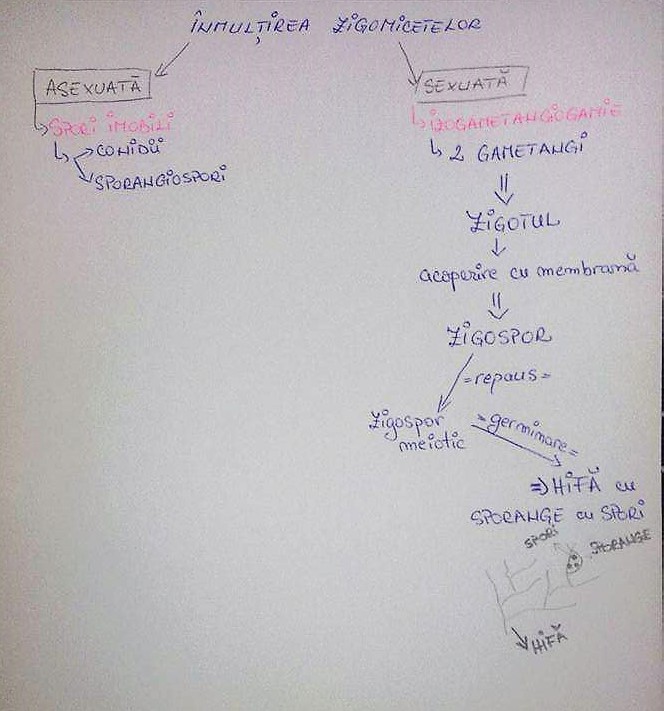 ÎNMULȚIREA ZIGOMICETELOR
ASEXUATĂ
SPORI IMOBILI
CONIDII
SPORANGIOSPORI
SEXUATĂ
IZOGAMETANGIOGAMIE
2 GAMETANGI
ZIGOTUL
acoperire cu membrană
ZIGOSPOR
=repaus=
Zigospor
meiotic
=germinare=
=> HIFĂ cu
SPORANGE cu SPORI
SPORI
SPORANGE
HIFĂ